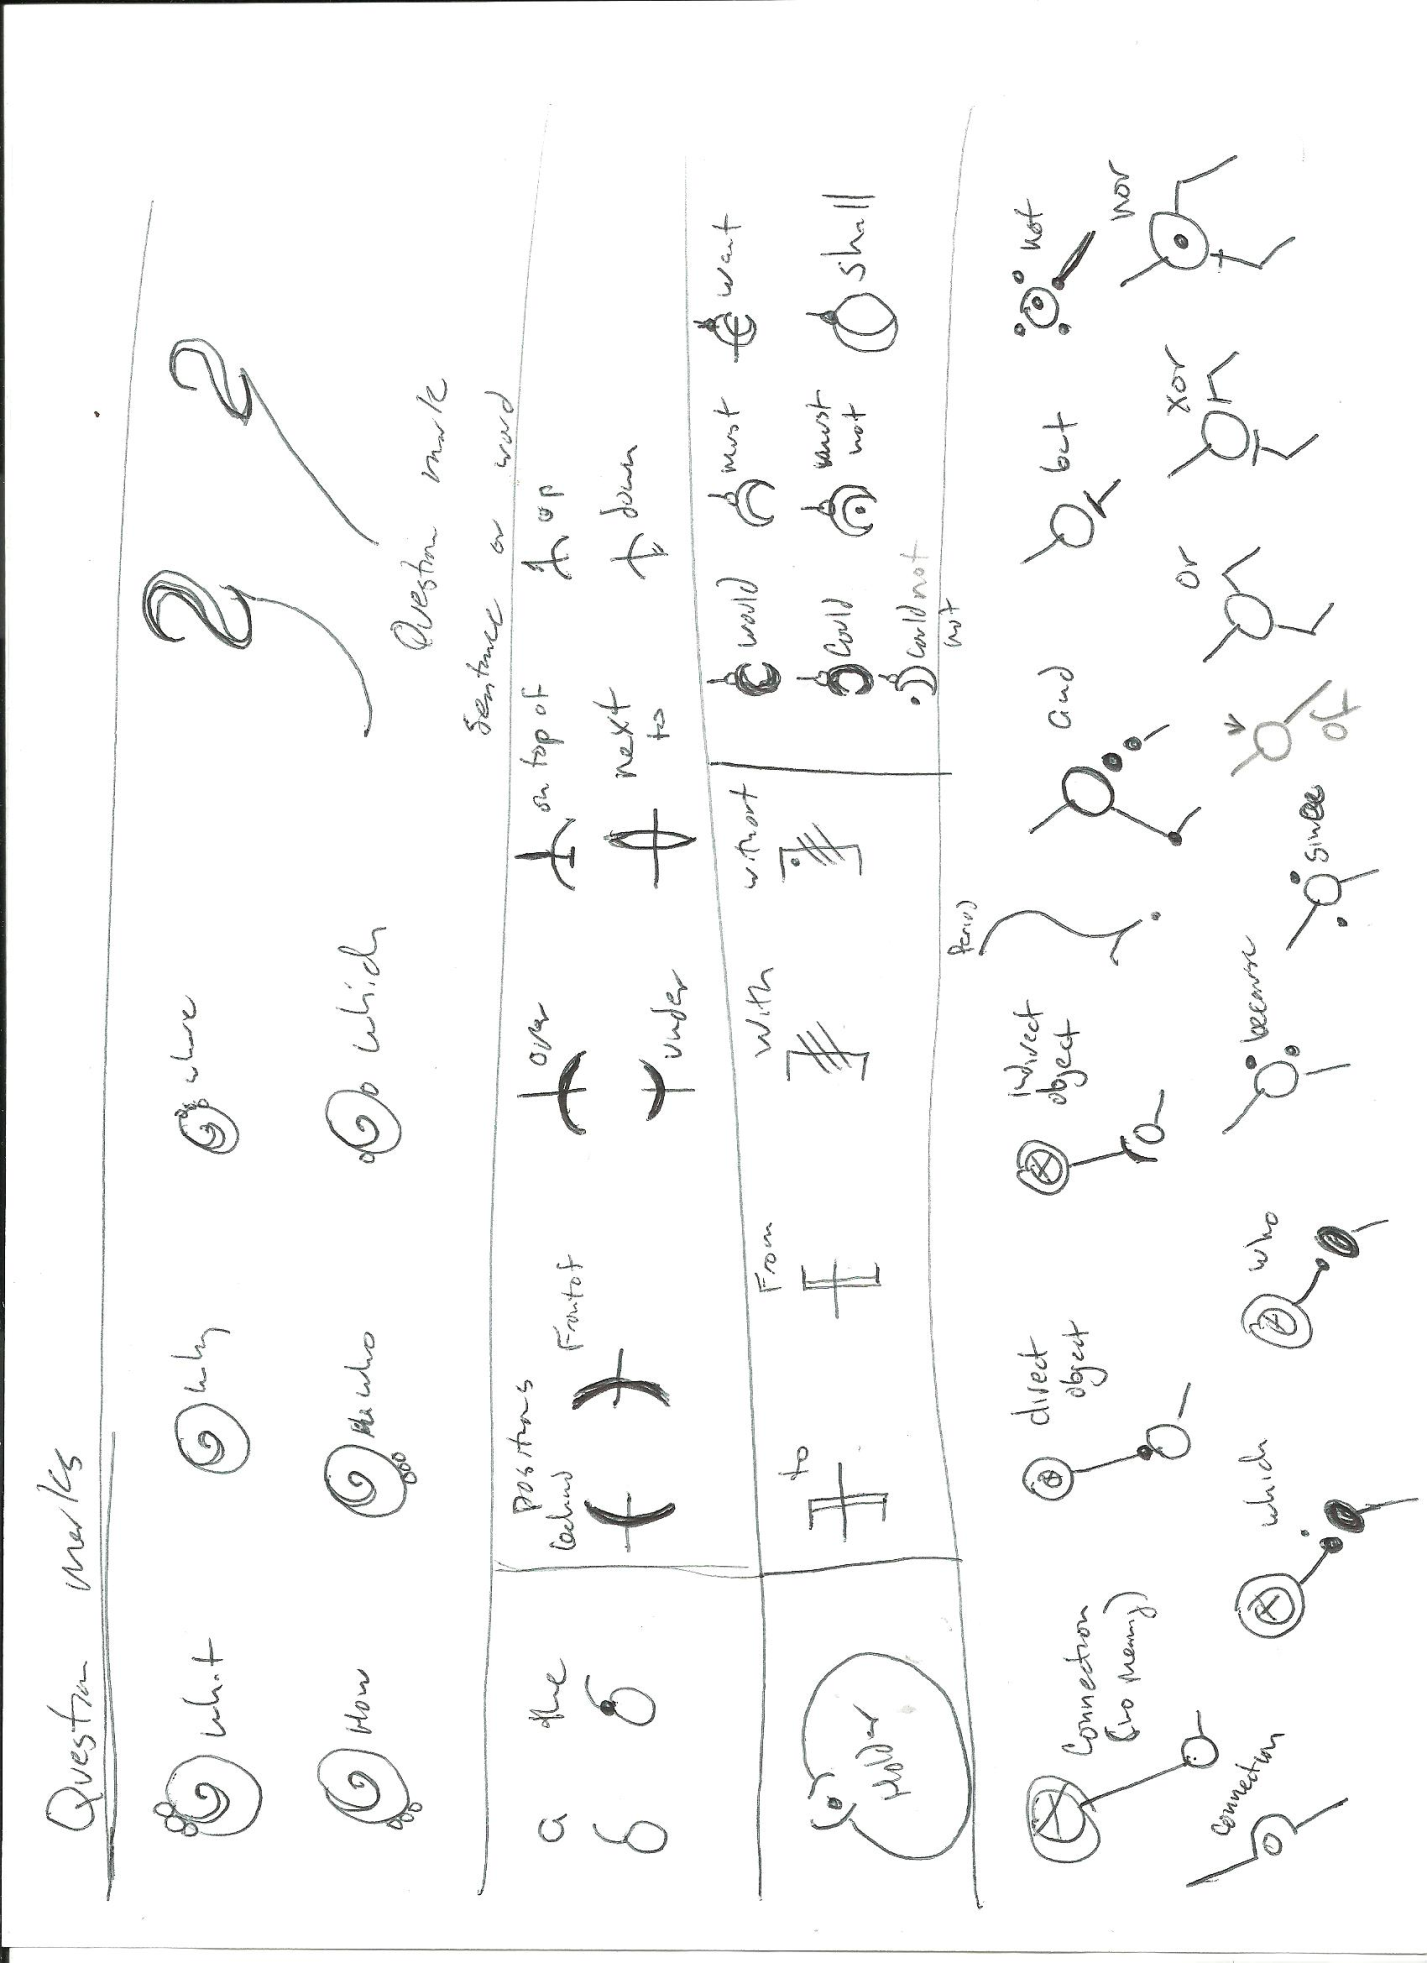 Question marks
what
why
where
How
who
which
Question mark
Sentence or word
a
the
positions
behind
Front of
over
on top of
up
under
next
to
down
Holder
to
From
with
without
would
must
want
could
must
not
shall
could not
not
Connection
(no meaning)
direct
object
indirect
object
Period
and
but
not
connection
which
who
because
since
of
or
xor
nor